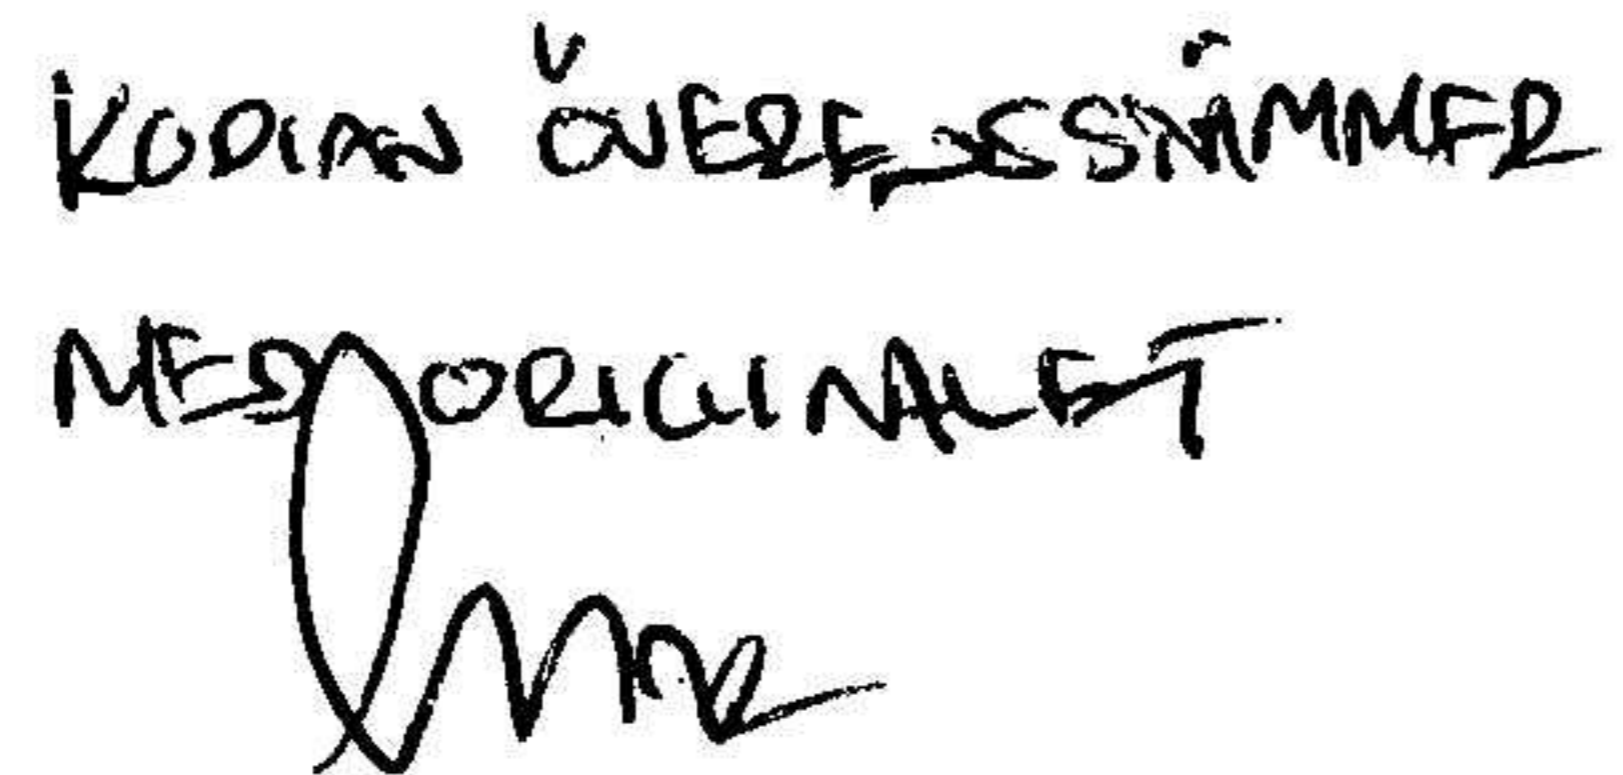 KODIAN ÖVERESSSTÄMMER
MED ORIGINALET